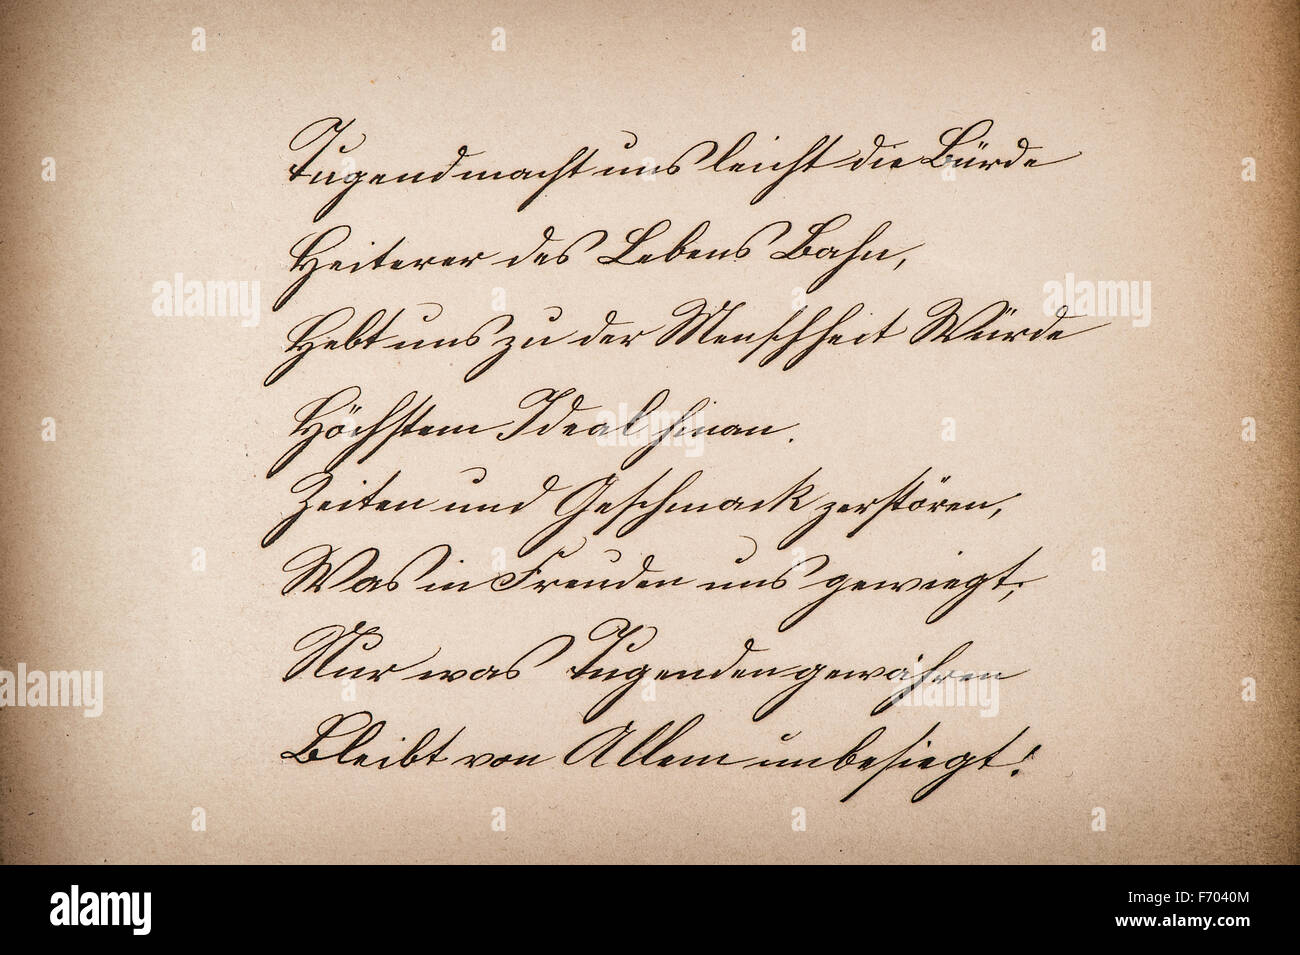 Tugend macht uns leicht die Bürde
Heiterer des Lebens Bahn,
Hebt uns zu der Menschheit Würde
Höchstem Ideal hinan.
Zeiten und Geschmack zerstören,
Was in Freuden uns gewiegt;
Nur was Tugenden gewähren
Bleibt von Allem unbesiegt!
alamy
alamy
alamy
alamy
alamy
alamy stock photo
F7040M
www.alamy.com